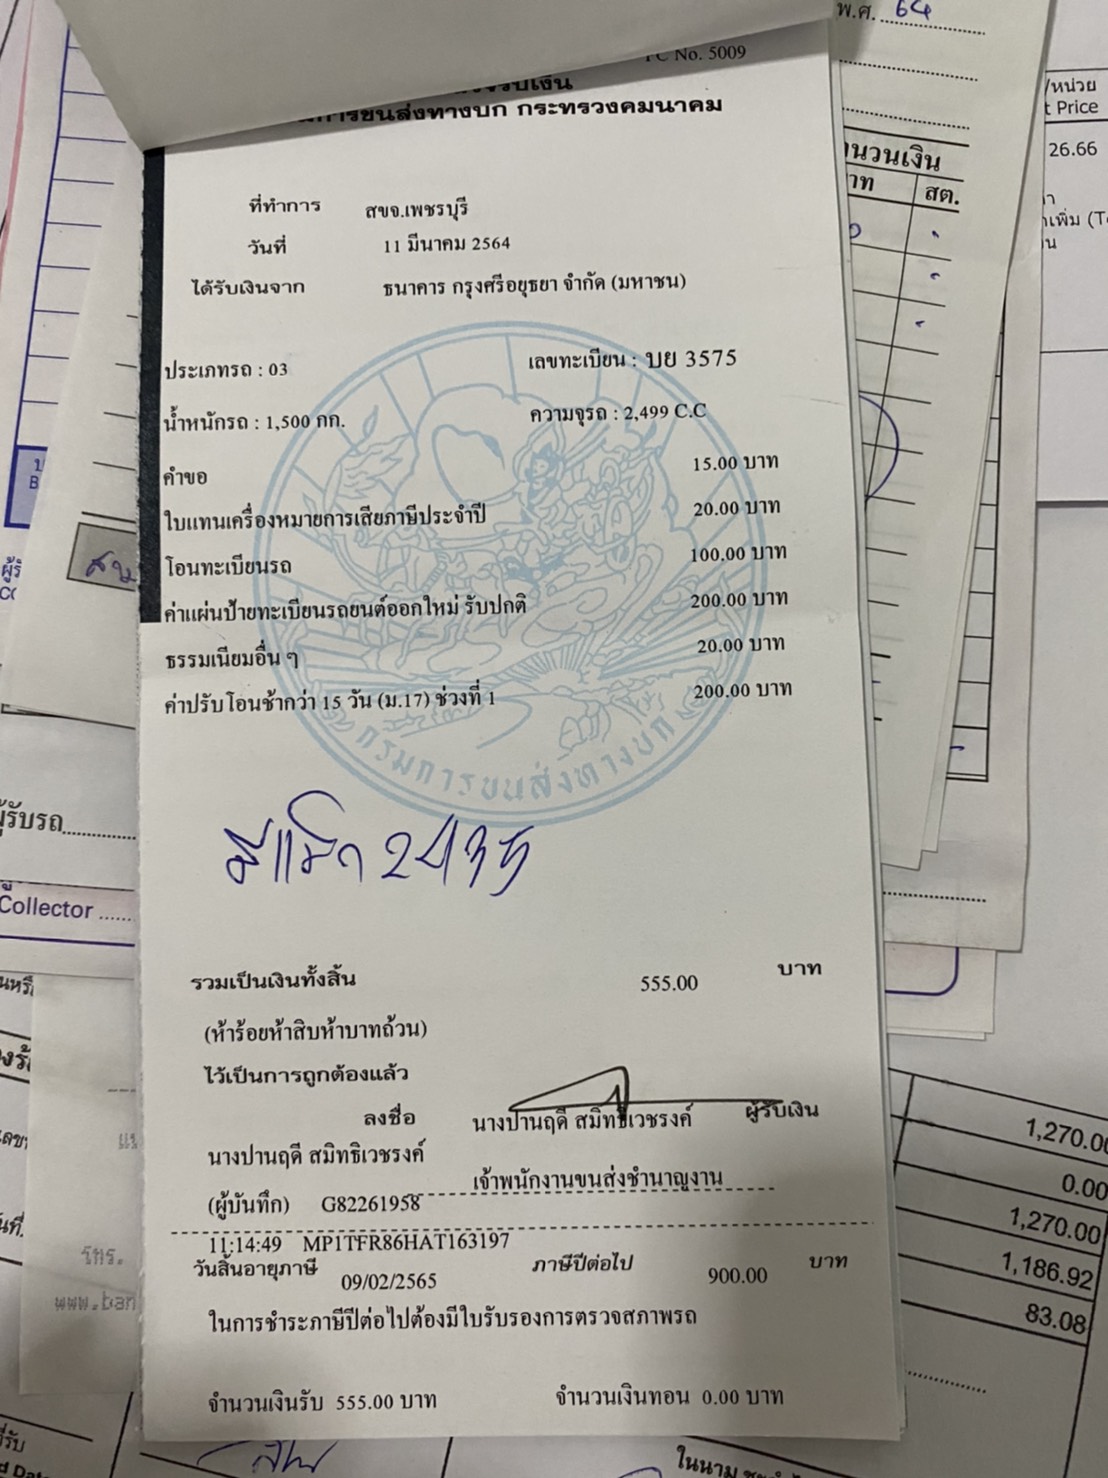 FC No. 5009
การขนส่งทางบก กระทรวงคมนาคม
ที่ทำการ สขจ.เพชรบุรี
วันที่ 11 มีนาคม 2564
ได้รับเงินจาก ธนาคาร กรุงศรีอยุธยา จำกัด (มหาชน)
ประเภทรถ : 03 เลขทะเบียน : บย 3575
น้ำหนักรถ : 1,500 กก. ความจุรถ : 2,499 C.C
คำขอ 15.00 บาท
ใบแทนเครื่องหมายการเสียภาษีประจำปี 20.00 บาท
โอนทะเบียนรถ 100.00 บาท
ค่าแผ่นป้ายทะเบียนรถยนต์ออกใหม่ รับปกติ 200.00 บาท
ธรรมเนียมอื่น ๆ 20.00 บาท
ค่าปรับโอนช้ากว่า 15 วัน (ม.17) ช่วงที่ 1 200.00 บาท
กรมการขนส่งทางบก
2435
รวมเป็นเงินทั้งสิ้น 555.00 บาท
(ห้าร้อยห้าสิบห้าบาทถ้วน)
ไว้เป็นการถูกต้องแล้ว
ลงชื่อ นางปานฤดี สมิทธิเวชรงค์ ผู้รับเงิน
นางปานฤดี สมิทธิเวชรงค์
เจ้าพนักงานขนส่งชำนาญงาน
(ผู้บันทึก) G82261958
11:14:49 MP1TFR86HAT163197
วันสิ้นอายุภาษี 09/02/2565 ภาษีปีต่อไป 900.00 บาท
ในการชำระภาษีปีต่อไปต้องมีใบรับรองการตรวจสภาพรถ
จำนวนเงินรับ 555.00 บาท จำนวนเงินทอน 0.00 บาท
พ.ศ. 64
/หน่วย
Price
26.66
สต.
ผู้รับรถ
Collector
โทร.
1,270.00
0.00
1,270.00
1,186.92
83.08
ในนาม